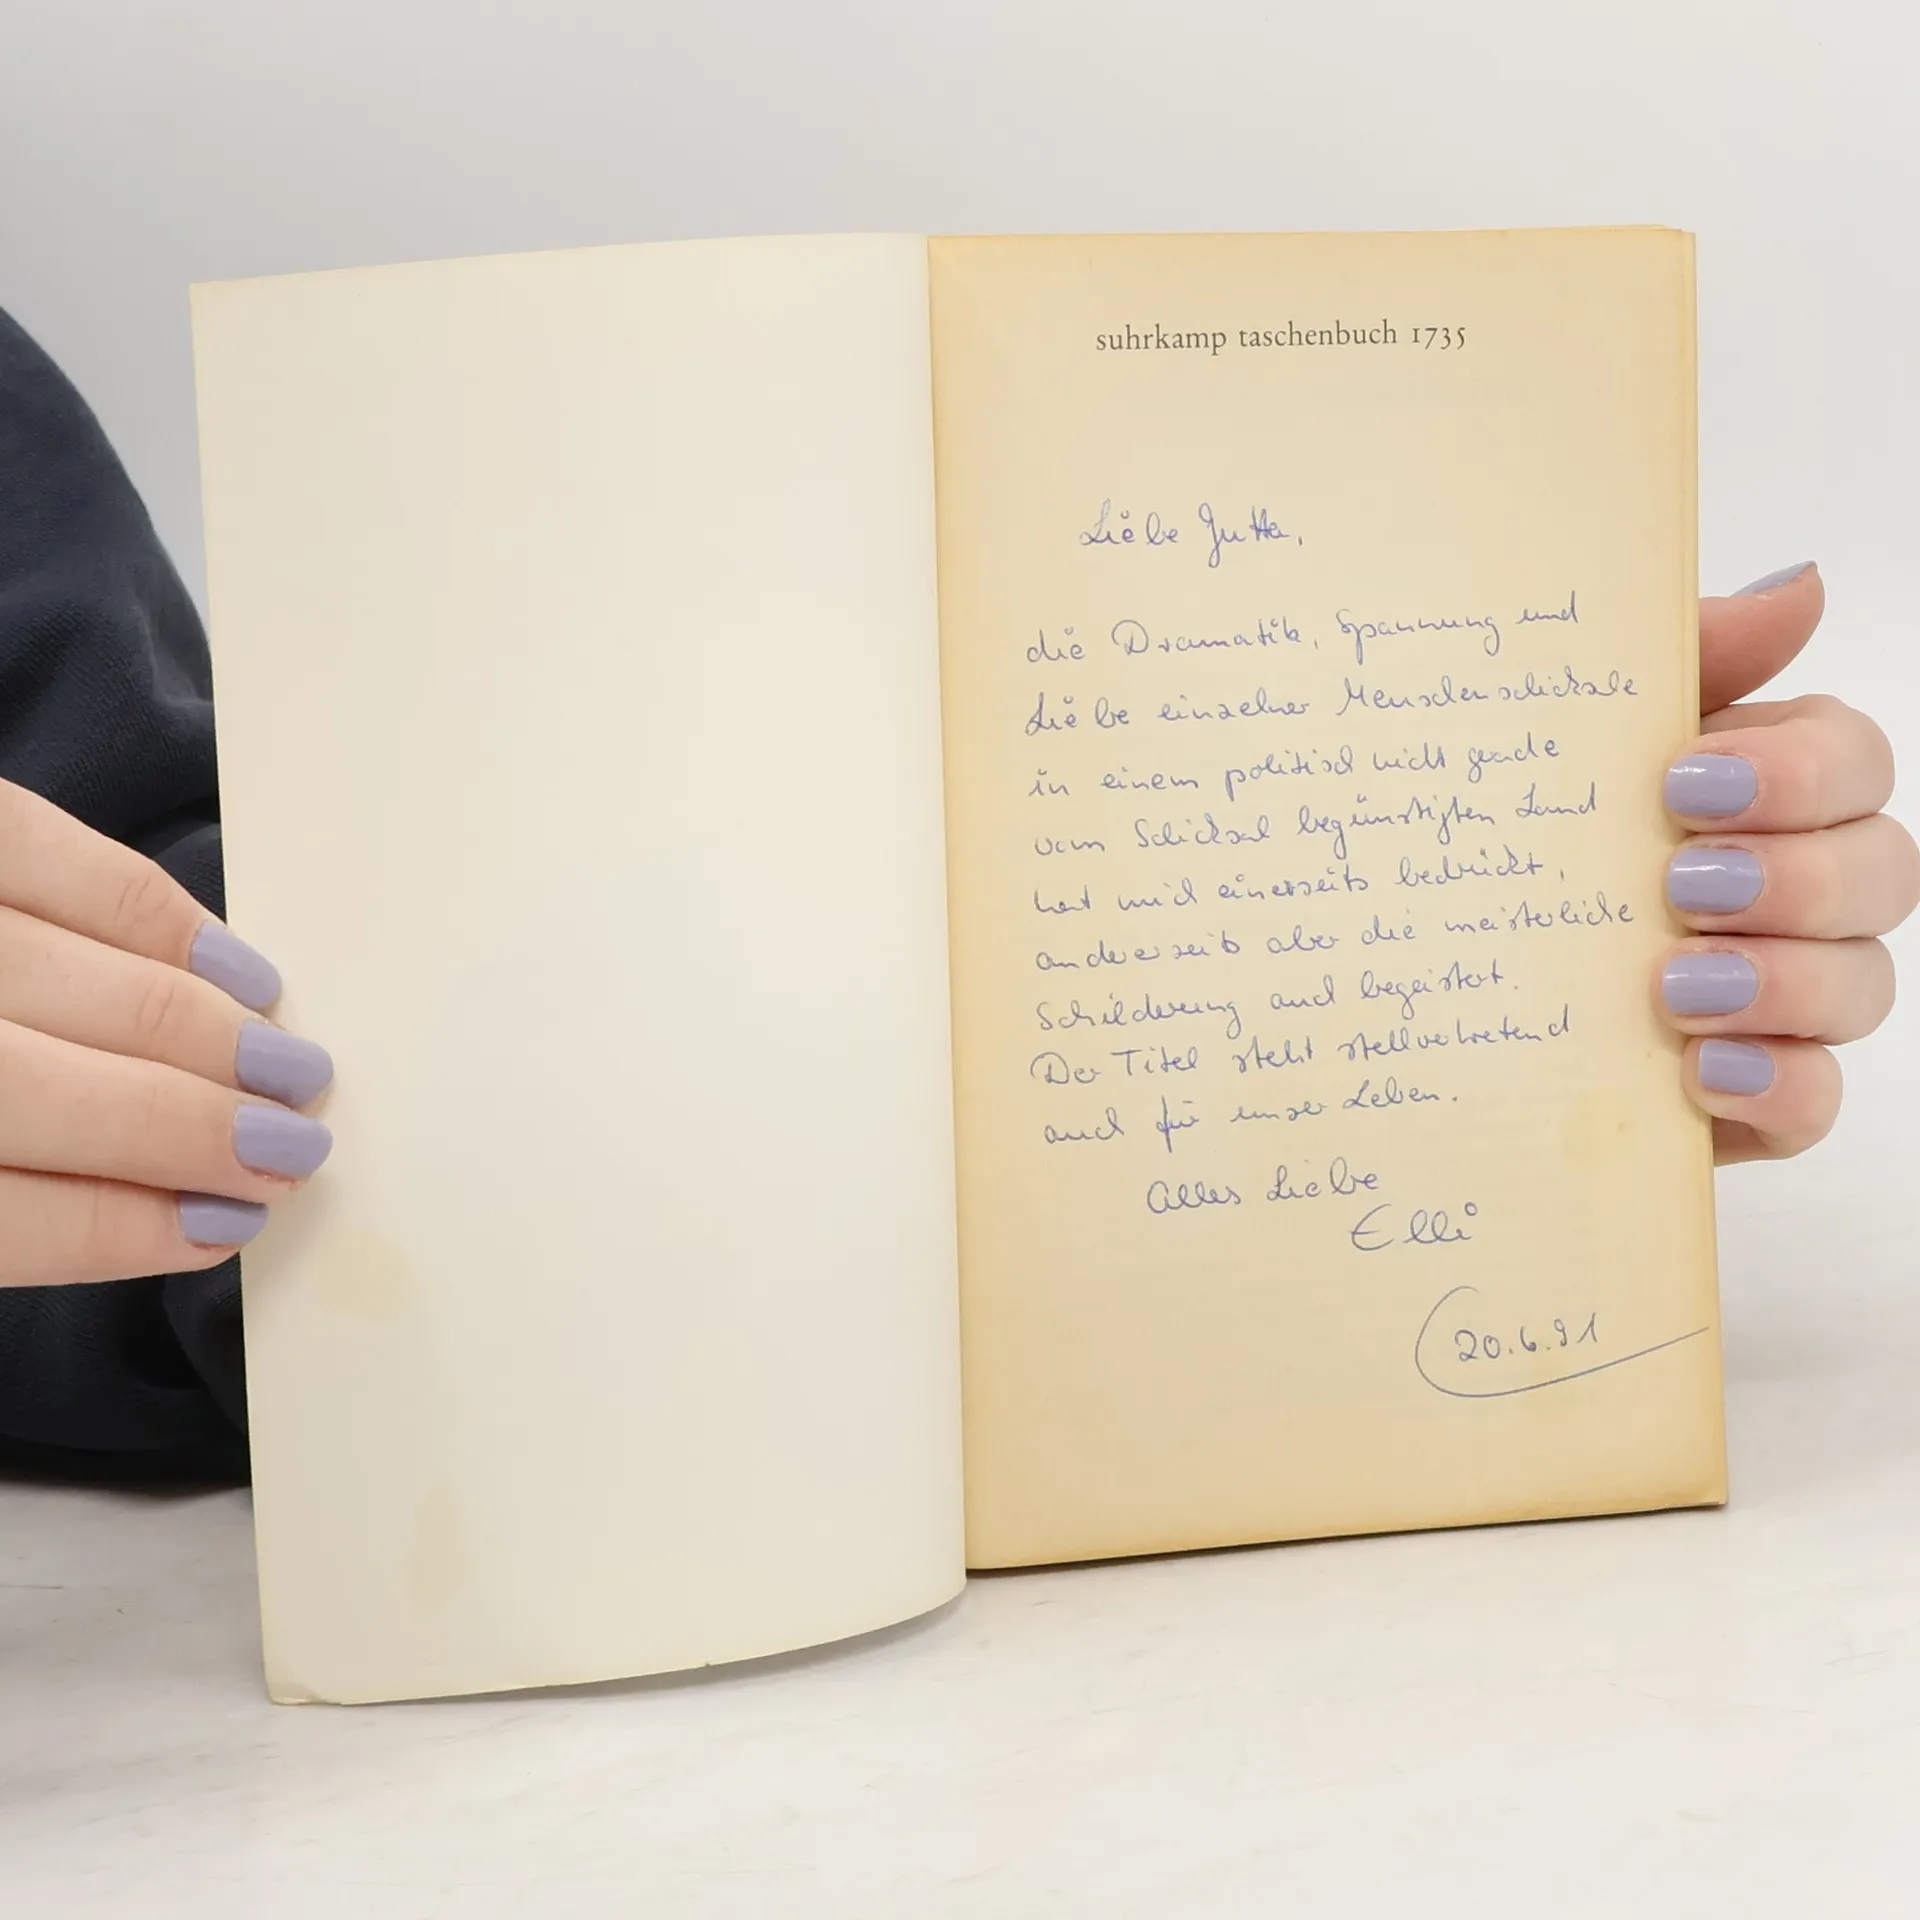 suhrkamp taschenbuch 1735
Liebe Jutta,
die Dramatik, Spannung und
Liebe einzelner Menschenschicksale
in einem politisch nicht gerade
vom Schicksal begünstigten Land
hat mich einerseits bedrückt,
andererseits aber die meisterliche
Schilderung auch begeistert.
Der Titel steht stellvertretend
auch für unser Leben.
Alles Liebe
Elli
20.6.91